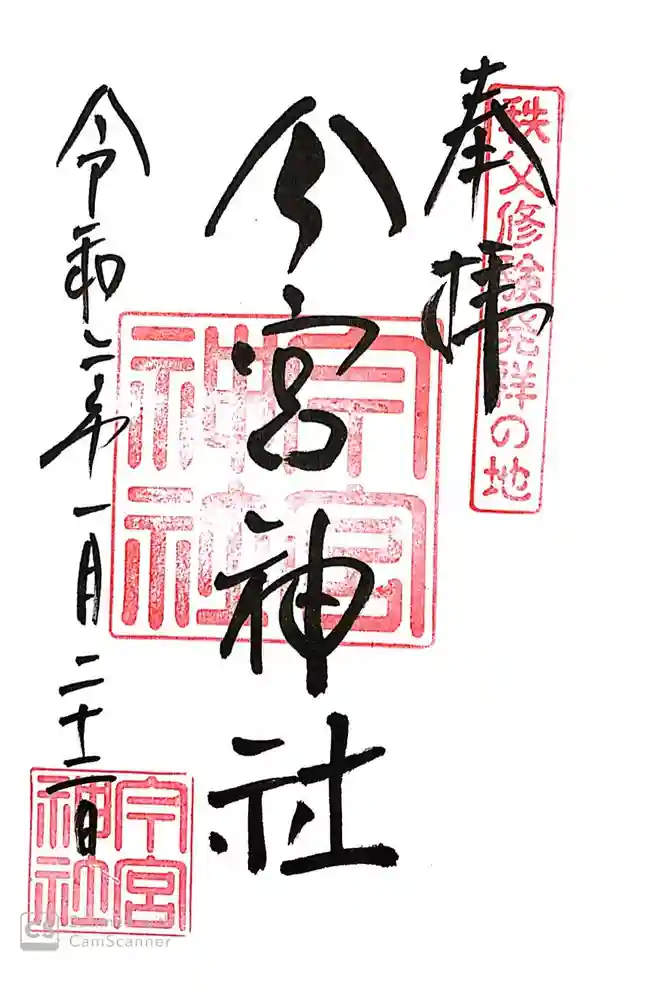 秩父修験発祥の地
奉拝
今宮神社
今宮神社
令和二年一月二十二日
今宮神社
CS
CamScanner